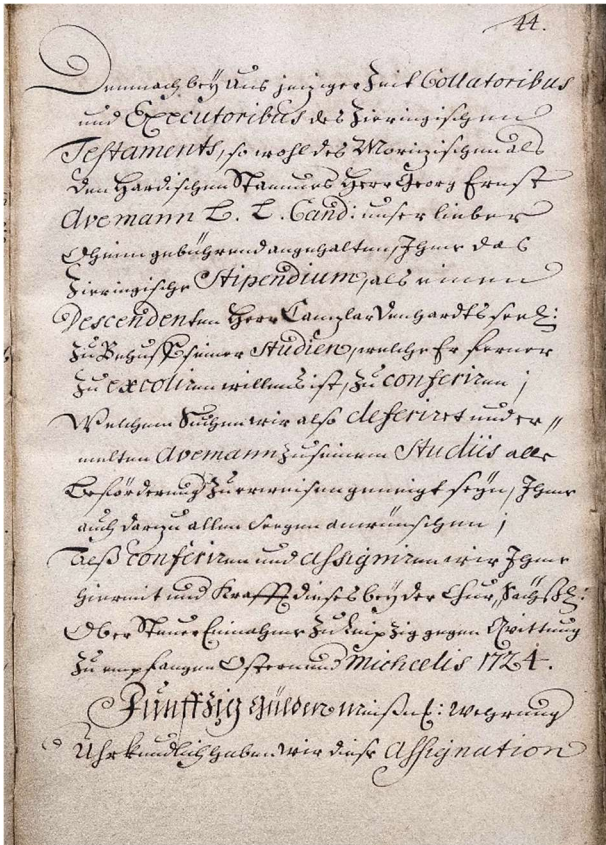 44.
Demnach bey Uns jeziger Zeit Collatoribus
und Executoribus des Zieringischen
Testaments, so wohl des Morizischen als
Denhardischen Stammes Herr Georg Ernst
Avemann L. L. Cand: unser lieber
Oheim gebührend angehalten, Ihme das
Zieringische Stipendium, als einen
Descendenten Herr Canzlar Denhardts seel:
zu Behuff seiner Studien, welche Er ferner
zu excoliren willens ist, zu conferiren;
Welchem Suchen wir also deferiret under„
melten Avemann zu seinem Studiis alle
Beförderung zu erweisen geneigt seyn, Ihme
auch darzu allen Seegen anwünschen;
Alß conferiren und assigniren wir Ihme
hiermit und Krafft dieses bey der Chur„Sächß:
Ober Steuer Einnahme zu Leipzig gegen Qwittung
zu empfangen Ostern und Michaelis 1724.
Funffzig Gülden Meißn: Wehrung
Uhrkundlich haben wir diese Assignation